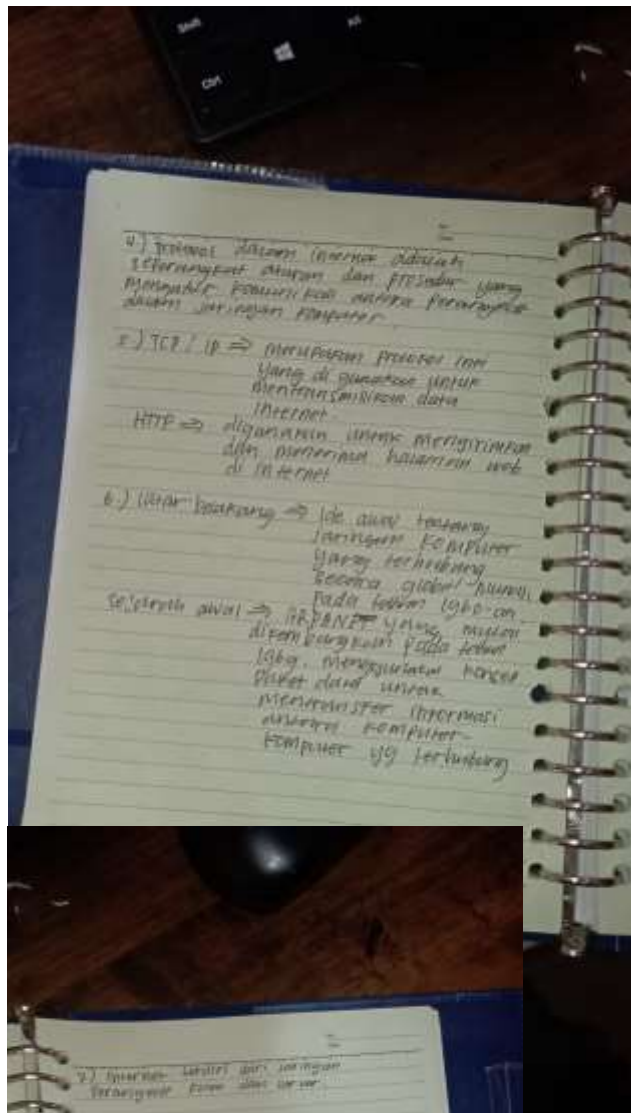 Shift
Alt
Ctrl
4.) Protokol dalam internet adalah
seperangkat aturan dan prosedur yang
mengatur komunikasi antara perangkat
dalam jaringan komputer
5.) TCP / IP ⇒ merupakan protokol inti
yang di gunakan untuk
mentransmisikan data
internet
HTTP ⇒ digunakan untuk mengirimkan
dan menerima halaman web
di internet
6.) latar belakang ⇒ Ide awal tentang
jaringan komputer
yang terhubung
secara global muncul
pada tahun 1960-an
sejarah awal ⇒ ARPANET yang mulai
dikembangkan pada tahun
1969. menggunakan konsep
paket data untuk
mentransfer informasi
antara komputer-
komputer yg terhubung
7.) Internet terdiri dari jaringan
perangkat keras dan server.